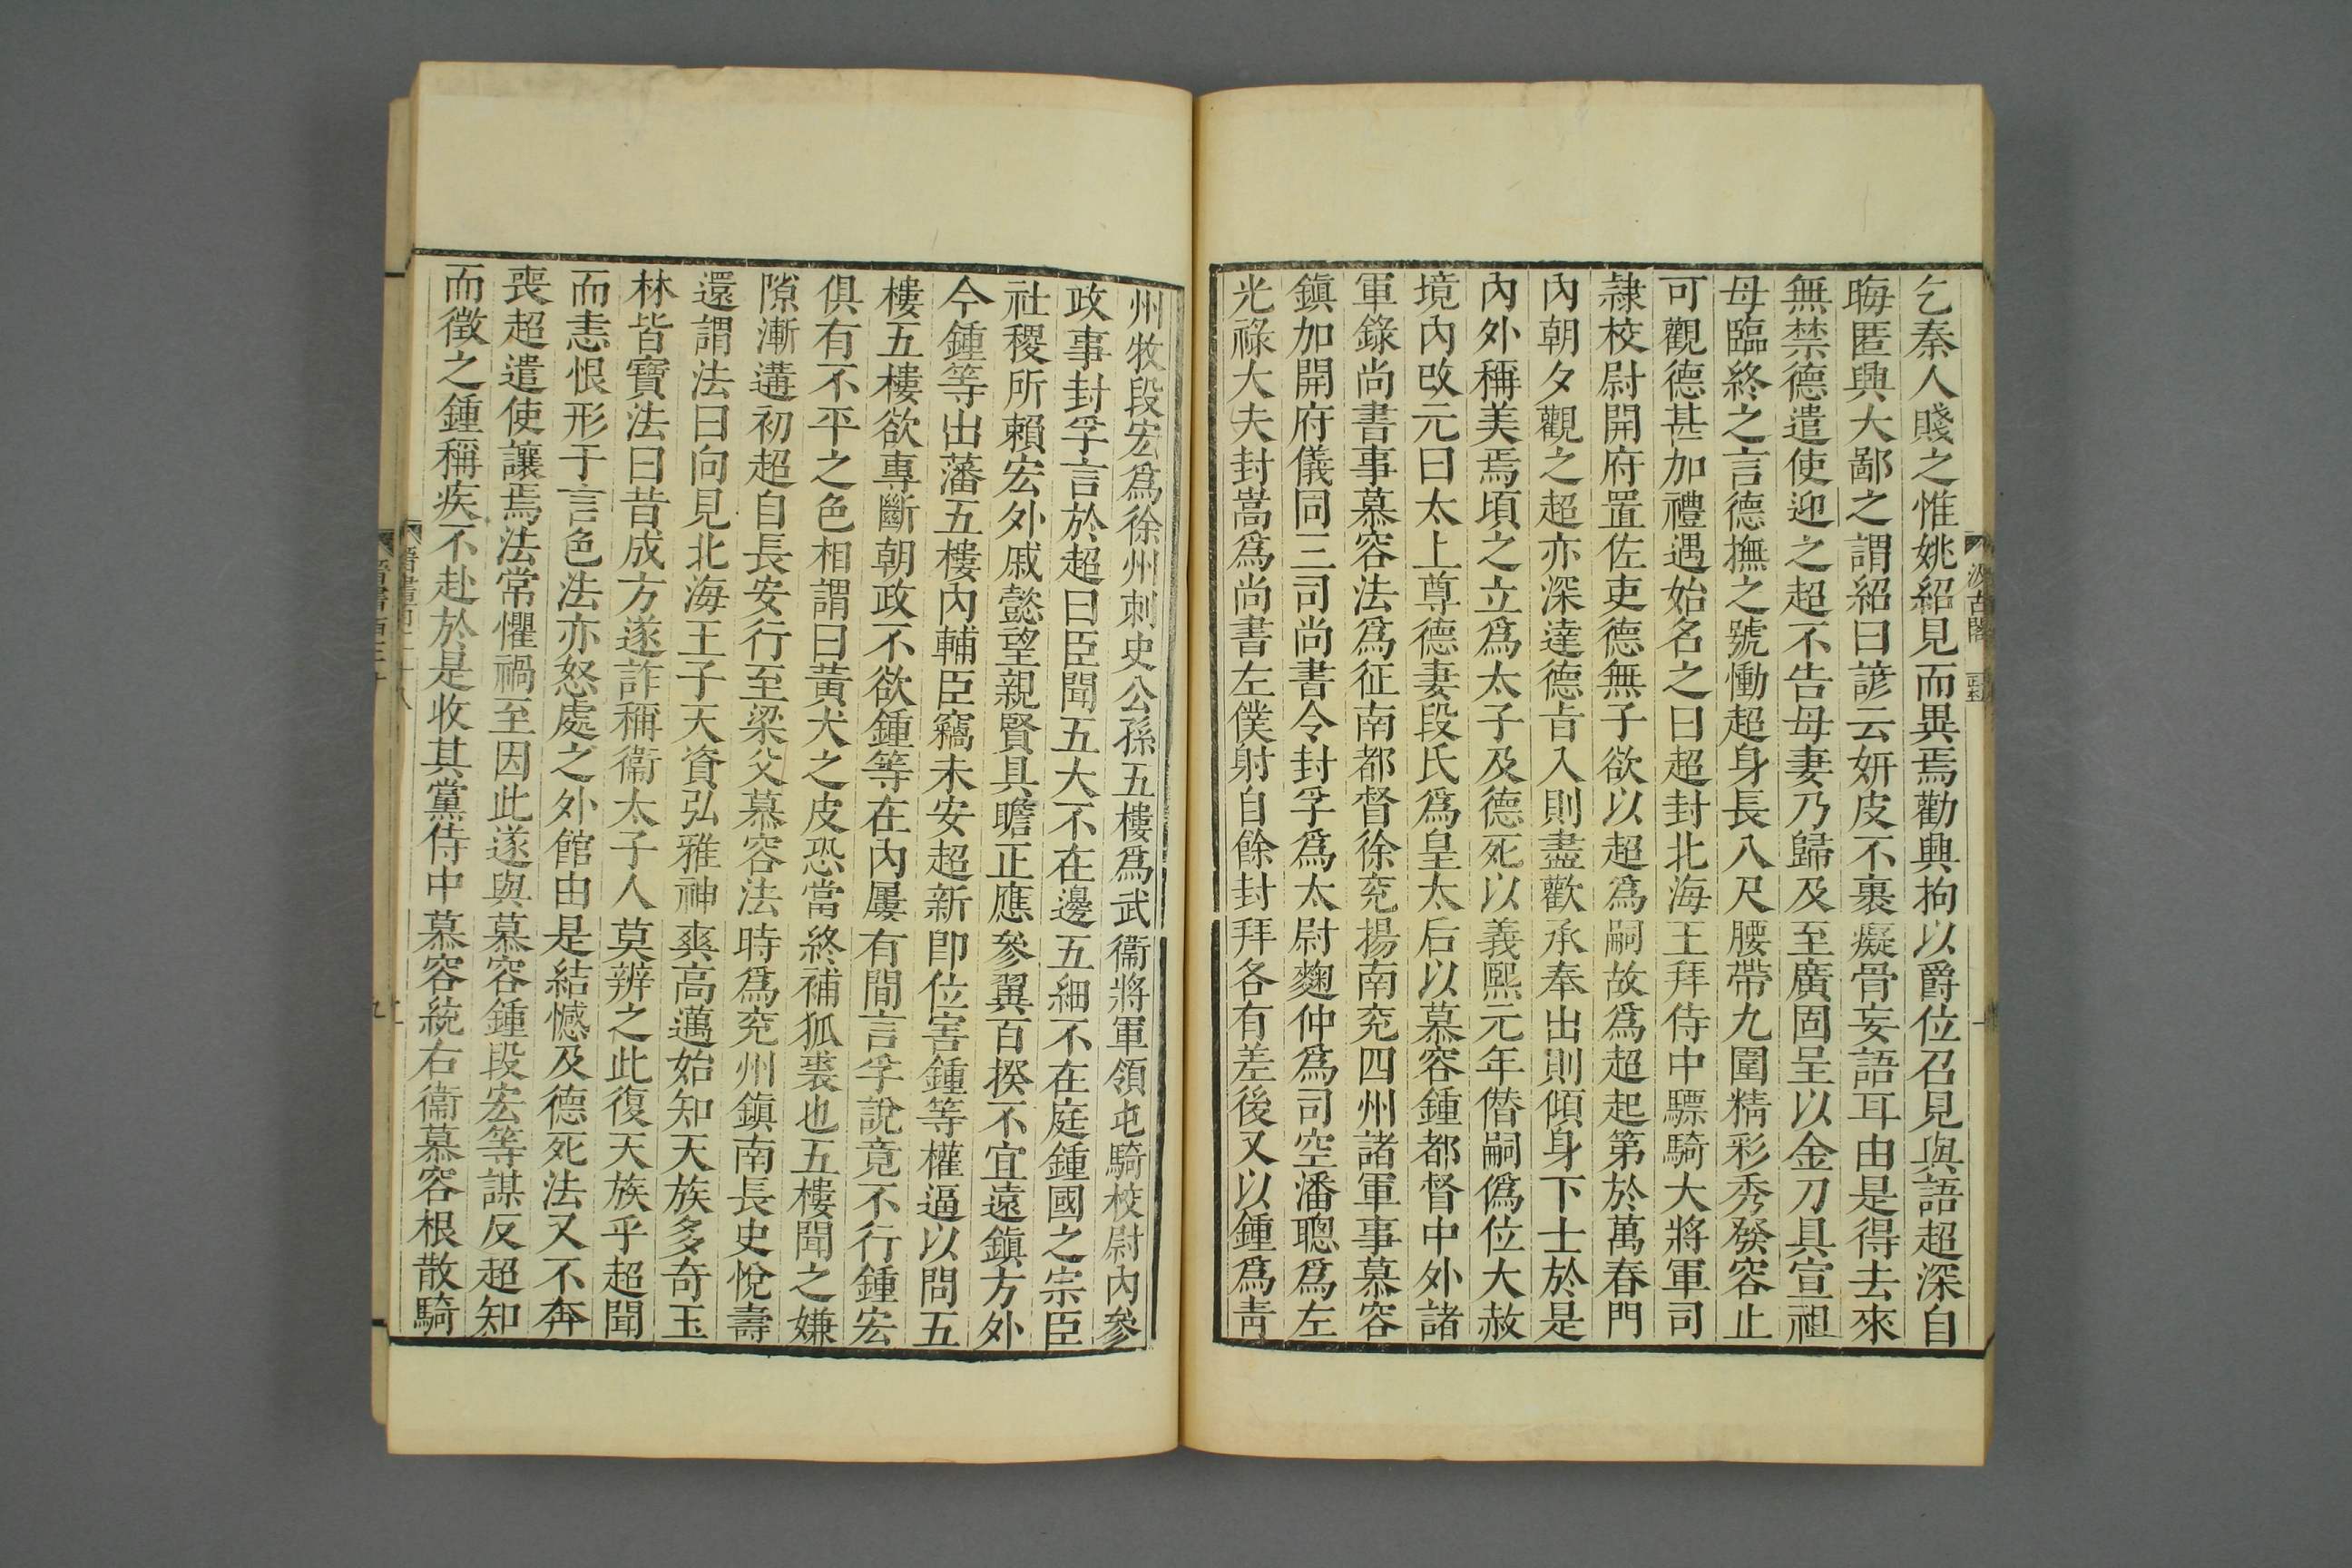 乞秦人賤之惟姚紹見而異焉勸興拘以爵位召見與語超深自
晦匿興大鄙之謂紹曰諺云妍皮不裹癡骨妄語耳由是得去來
無禁德遣使迎之超不告母妻乃歸及至廣固呈以金刀具宣祖
母臨終之言德撫之號慟超身長八尺腰帶九圍精彩秀發容止
可觀德甚加禮遇始名之曰超封北海王拜侍中驃騎大將軍司
隷校尉開府置佐吏德無子欲以超爲嗣故爲超起第於萬春門
內朝夕觀之超亦深達德旨入則盡歡承奉出則傾身下士於是
內外稱美焉頃之立爲太子及德死以義熙元年僭嗣僞位大赦
境內改元曰太上尊德妻段氏爲皇太后以慕容鍾都督中外諸
軍錄尚書事慕容法爲征南都督徐兖揚南兖四州諸軍事慕容
鎮加開府儀同三司尚書令封孚爲太尉麴仲爲司空潘聰爲左
光祿大夫封嵩爲尚書左僕射自餘封拜各有差後又以鍾爲靑
汲古閣
州牧段宏爲徐州刺史公孫五樓爲武衞將軍領屯騎校尉內參
政事封孚言於超曰臣聞五大不在邊五細不在庭鍾國之宗臣
社稷所賴宏外戚懿望親賢具瞻正應參翼百揆不宜遠鎮方外
今鍾等出藩五樓內輔臣竊未安超新卽位害鍾等權逼以問五
樓五樓欲專斷朝政不欲鍾等在內屢有間言孚說竟不行鍾宏
俱有不平之色相謂曰黃犬之皮恐當終補狐裘也五樓聞之嫌
隙漸遘初超自長安行至梁父慕容法時爲兖州鎮南長史悅壽
還謂法曰向見北海王子天資弘雅神爽高邁始知天族多奇玉
林皆寶法曰昔成方遂詐稱衞太子人莫辨之此復天族乎超聞
而恚恨形于言色法亦怒處之外館由是結憾及德死法又不奔
喪超遣使讓焉法常懼禍至因此遂與慕容鍾段宏等謀反超知
而徵之鍾稱疾不赴於是收其黨侍中慕容統右衞慕容根散騎